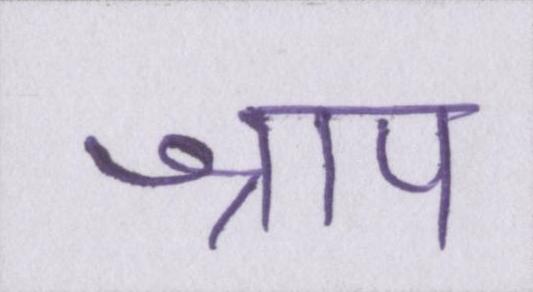 श्राप